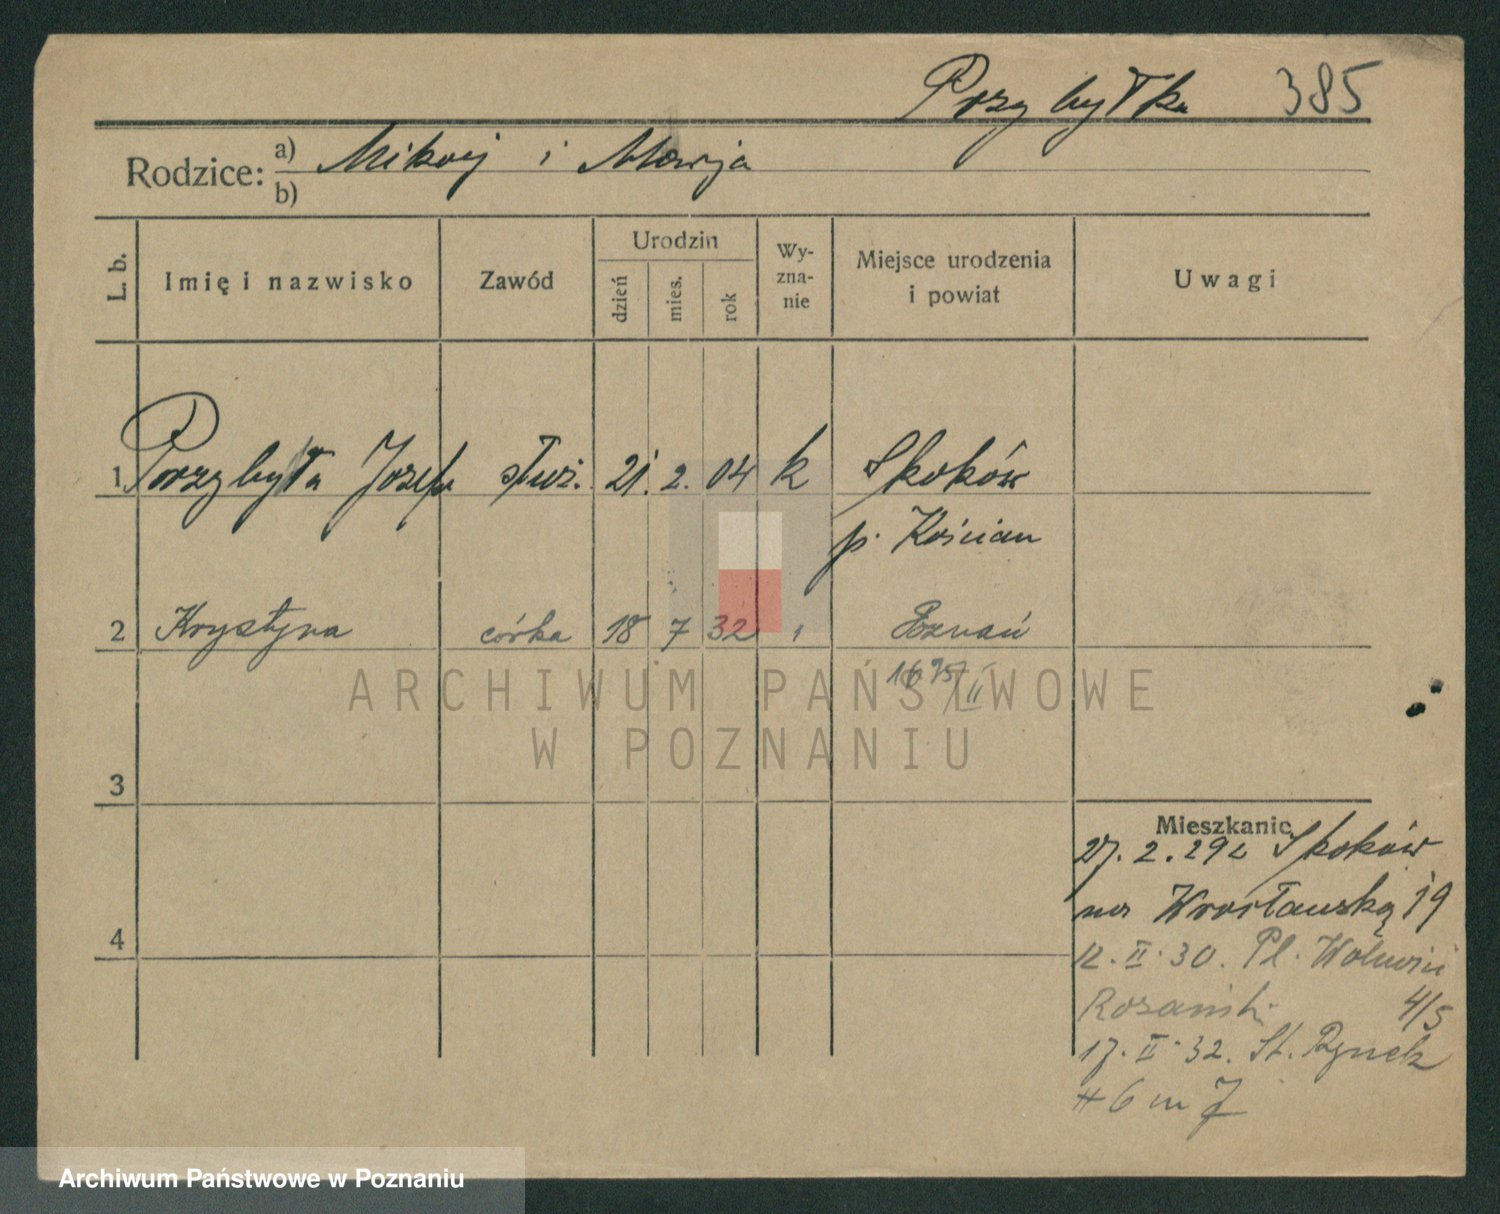 Przybyłka 385
Rodzice: a) Mikoaj i Marja
b)
L. b.
Imię i nazwisko
Zawód
Urodzin
dzień
mies.
rok
Wy-
zna-
nie
Miejsce urodzenia
i powiat
Uwagi
1 Przybyła Józefa służ. 21. 2. 04 k Skoków
p. Kościan
2 Krystyna córka 18 7 32 Poznań
II
3
4
Mieszkanie
27. 2. 29 z Skoków
na Wrocławską 19
12. II. 30. Pl. Wolności
4/5
17. II. 32. St. Rynek
6 m 7
ARCHIWUM PAŃSTWOWE
W POZNANIU
Archiwum Państwowe w Poznaniu